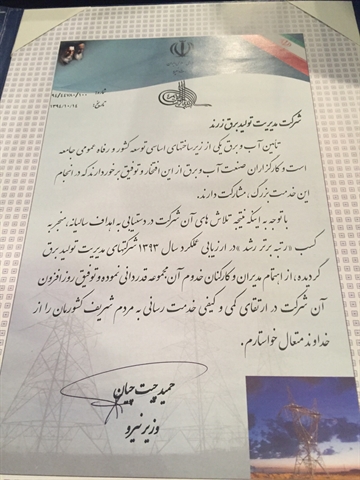 شماره: ۹۴/۴۴۹۸۰/۱۰۰
تاریخ: ۱۳۹۴/۱۰/۱۴
شرکت مدیریت تولید برق زرند
تأمین آب و برق یکی از زیرساختهای اساسی توسعه کشور و رفاه عمومی جامعه
است و کارگزاران صنعت آب و برق از این افتخار و توفیق برخوردارند که در انجام
این خدمت بزرگ، مشارکت دارند.
با توجه به اینکه نتیجه تلاش های آن شرکت در دستیابی به اهداف سالیانه، منجر به
کسب «رتبه برتر رشد» در ارزیابی عملکرد سال ۱۳۹۳ شرکتهای مدیریت تولید برق
گردیده، از اهتمام مدیران و کارکنان خدوم آن مجموعه قدردانی نموده و توفیق روزافزون
آن شرکت در ارتقای کمی و کیفی خدمت رسانی به مردم شریف کشورمان را از
خداوند متعال خواستارم.
حمید چیت چیان
وزیر نیرو